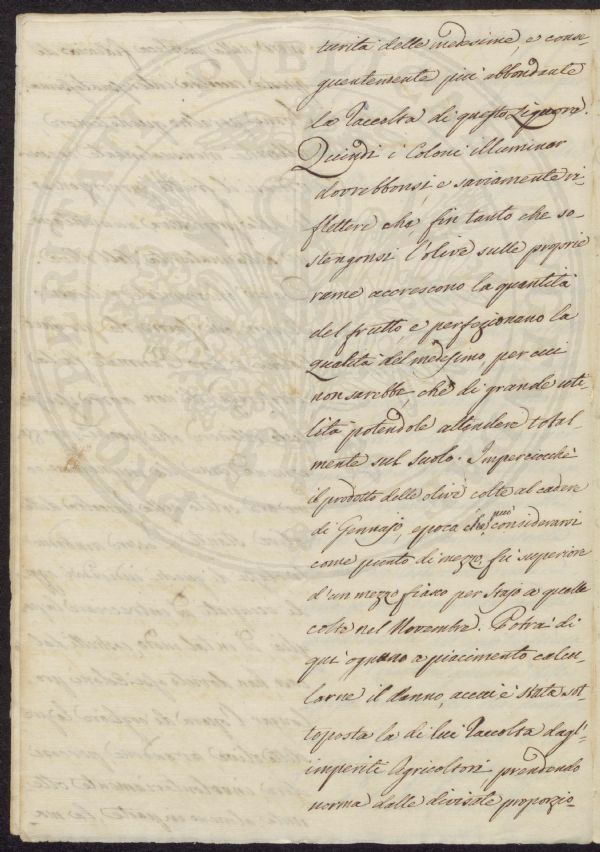 turità delle medesime, e conse-
guentemente più abbondante
la Raccolta di questo Liquore.
Quindi i Coloni illuminar
dovrebbonsi, e saviamente ri-
flettere che, fin tanto che so-
stengonsi l'olive sulle proprie
rame accrescono la quantità
del frutto, e perfezionano la
qualità del medesimo, per cui
non sarebbe, che di grande uti-
lità potendole attendere total-
mente sul suolo. Imperciocchè
il prodotto delle olive colte al cadere
di Gennajo, epoca che può considerarsi
come punto di mezzo, fù superiore
d'un mezzo fiasco per Stajo a quelle
colte nel Novembre. Potrà di
quì ognuno a piacimento calco-
larne il danno, a cui è stata sot-
toposta la di lui Raccolta dagl'
imperiti Agricoltori prendendo
norma dalle divisate proporzio-